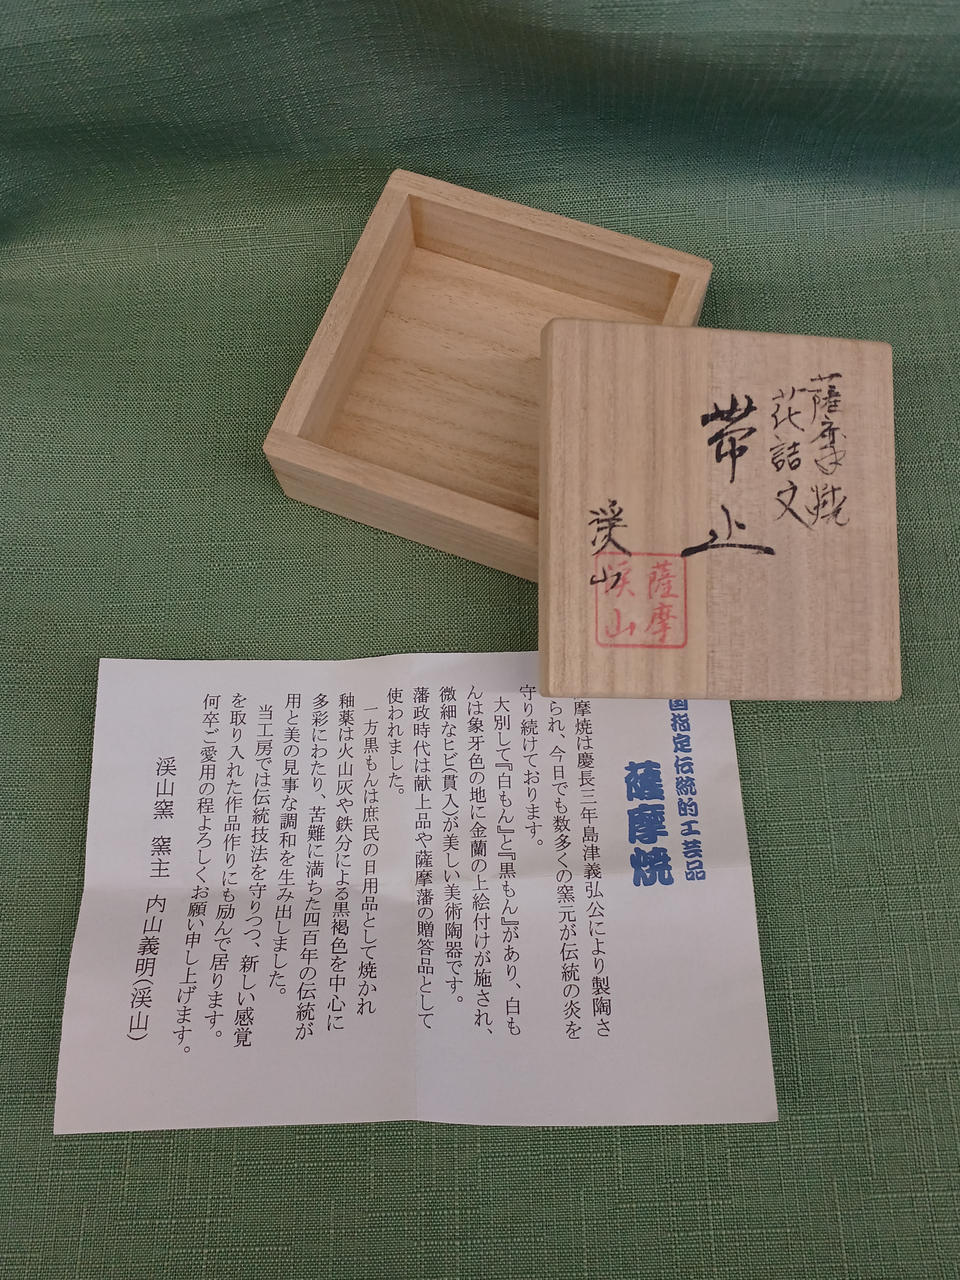 薩摩焼
花詰文
帯止
渓山
薩摩
渓山
国指定伝統的工芸品
薩摩焼
摩焼は慶長三年島津義弘公により製陶さ
られ、今日でも数多くの窯元が伝統の炎を
守り続けております。
大別して『白もん』と『黒もん』があり、白も
んは象牙色の地に金蘭の上絵付けが施され、
微細なヒビ(貫入)が美しい美術陶器です。
藩政時代は献上品や薩摩藩の贈答品として
使われました。
一方黒もんは庶民の日用品として焼かれ
釉薬は火山灰や鉄分による黒褐色を中心に
多彩にわたり、苦難に満ちた四百年の伝統が
用と美の見事な調和を生み出しました。
当工房では伝統技法を守りつつ、新しい感覚
を取り入れた作品作りにも励んで居ります。
何卒ご愛用の程よろしくお願い申し上げます。
渓山窯 窯主 内山義明(渓山)